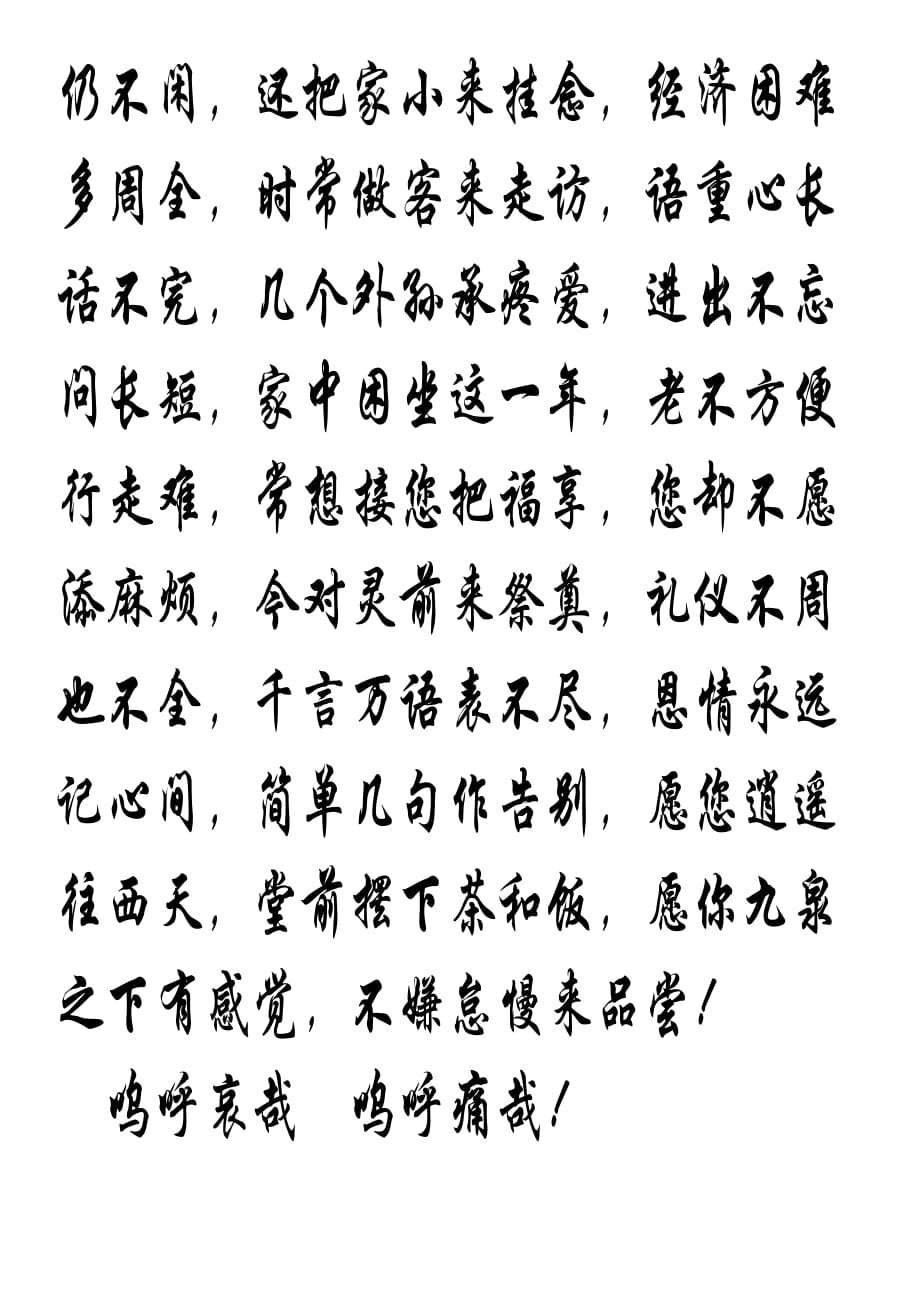 仍不闲，还把家小来挂念，经济困难
多周全，时常做客来走访，语重心长
话不完，几个外孙承疼爱，进出不忘
问长短，家中困坐这一年，老不方便
行走难，常想接您把福享，您却不愿
添麻烦，今对灵前来祭奠，礼仪不周
也不全，千言万语表不尽，恩情永远
记心间，简单几句作告别，愿您逍遥
往西天，堂前摆下茶和饭，愿你九泉
之下有感觉，不嫌怠慢来品尝！
呜呼哀哉　呜呼痛哉！